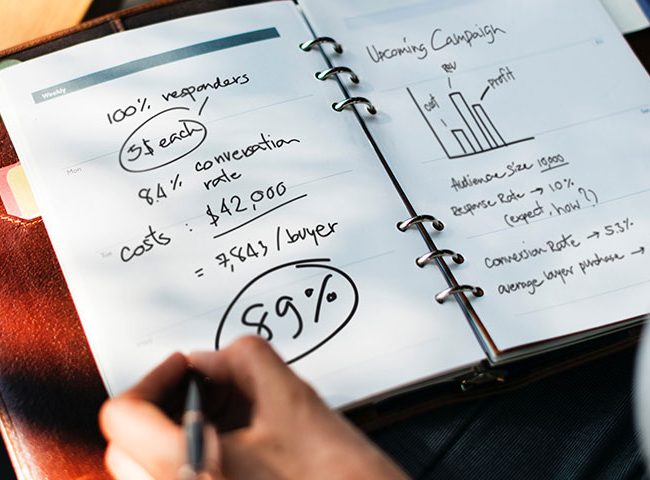 Weekly
100% responders
5$ each
Mon
8.4% conversation
rate
costs : $42,000
= 7,843 / buyer
89%
Upcoming Campaign
cost
rev
Profit
Audience Size 10,000
Response Rate → 10%
(expect, how?)
Conversion Rate → 5.3%
average buyer purchase →